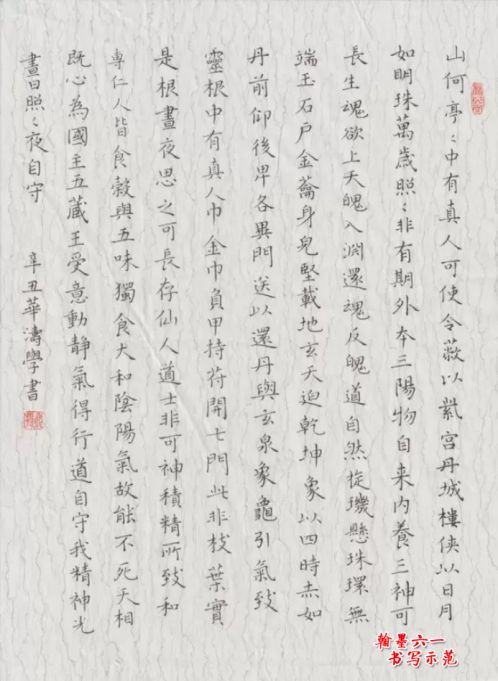 山何亭〻中有真人可使令蔽以紫宫丹城樓侠以日月
如明珠萬歲照〻非有期外夲三陽物自来内養三神可
長生魂欲上天魄入渊還魂反魄道自然挻璣懸珠環無
端玉石戶金蘥身皃堅載地玄天迫乾坤象以四時赤如
丹前仰後卑各異門送以還丹與玄泉象龜引氣致
靈根中有真人巾金巾負甲持苻開七門此非枝葉實
是根晝夜思之可長存仙人道士非可神積精所致和
專仁人皆食穀與五味獨食大和陰陽氣故能不死天相
既心為國主五藏王受意動静氣得行道自守我精神光
晝日照〻夜自守 辛丑華濤學書
翰墨六一
书写示范